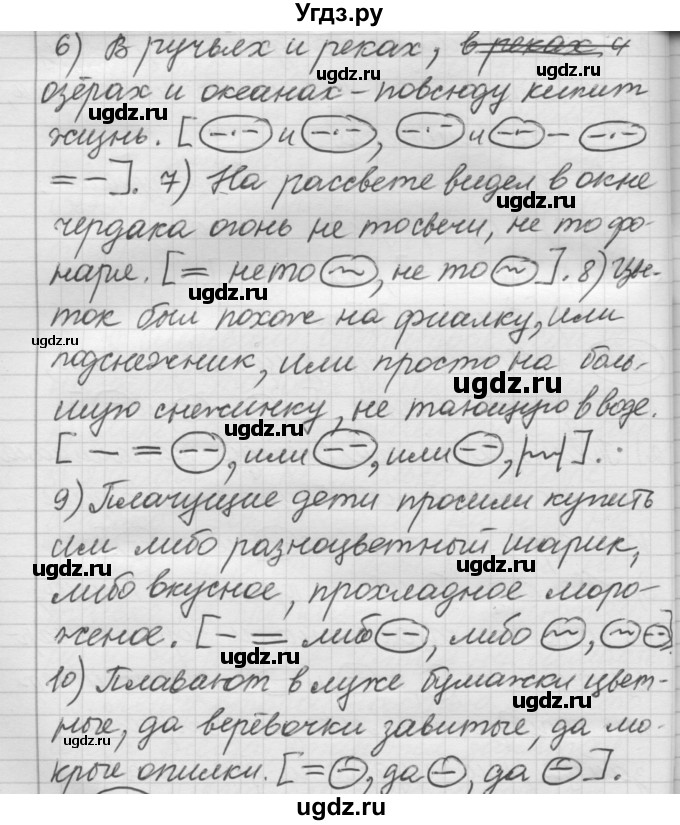 Угдз.ру
6) В ручьях и реках, в реках и
озёрах и океанах – повсюду кипит
жизнь. [(–·–) и (–·–), (–·–) и (–·–) – (–·–)
= –]. 7) На рассвете видел в окне
чердака огонь не то свечи, не то фо-
наря. [= не то (~), не то (~)]. 8) Цве-
ток был похож на фиалку, или
подснежник, или просто на боль-
шую снежинку, не тающую в воде.
[– = (– –), или (– –), или (– –), |~|].
9) Плачущие дети просили купить
им либо разноцветный шарик,
либо вкусное, прохладное моро-
женое. [– = либо (– –), либо (~), (~) (– –)]
10) Плавают в луже бумажки цвет-
ные, да верёвочки завитые, да мо-
крые опилки. [= (–), да (–), да (–)].
ugdz.ru
ugdz.ru
ugdz.ru
ugdz.ru
ugdz.ru
ugdz.ru
ugdz.ru
ugdz.ru
ugdz.ru
ugdz.ru
ugdz.ru
ugdz.ru
ugdz.ru
ugdz.ru